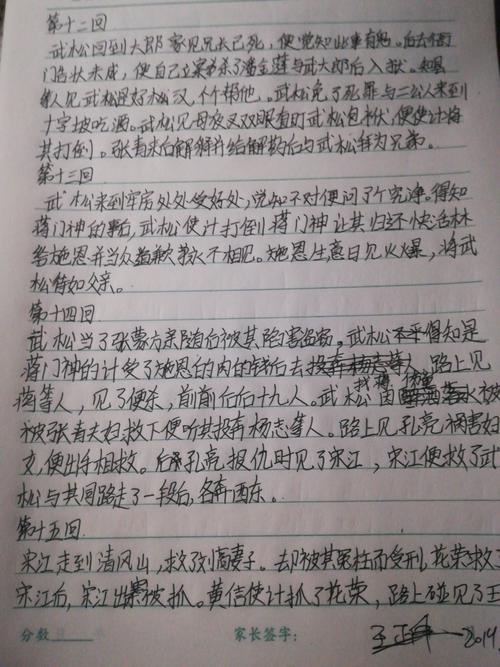 第十二回
武松回到大郎家见兄长已死，便觉知此事有鬼。后去衙
门告状未成，便自己立案杀了潘金莲与武大郎后入狱。知县
等人见武松是好松汉，个个帮他。武松免了死罪与二公人来到
十字坡吃酒。武松见母夜叉双眼直盯武松包袱，便使计将
其打倒。张青求后解释并给解药后与武松拜为兄弟。
第十三回
武松来到牢房处处受好处，觉知不对便问了个究净。得知
蒋门神的事后，武松使计打倒蒋门神让其归还快活林
给施恩并当众道歉永不相见。施恩生意日见火火爆，将武
松待如父亲。
第十四回
武松当了张蒙方亲随后被其陷害盗窃。武松得知是
蒋门神的计受了施恩的肉的钱后去 路上见
蒋等人，见了便杀，前前后后十九人。武松因 被
被张青夫妇救下便听其投奔杨志等人。路上见孔亮祸害妇
女，便出手相救。后孔亮报仇时见了宋江，宋江便救了武
松与共同路走了一段后，各奔西东。
第十五回
宋江走到清风山，救了刘高妻子。却被其冤枉而受刑，花荣救了
宋江后，宋江出寨被抓。黄信使计抓了花荣，路上碰见了王
分数
家长签字：
2019